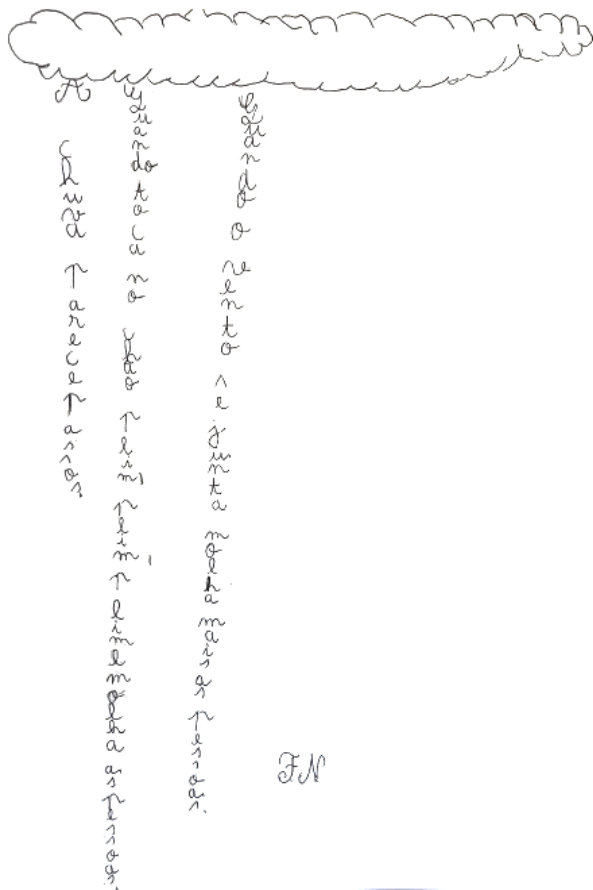 A chuva parece passos.
Quando toca no chão plim, plim, plim e molha as pessoas.
Quando o vento se junta molha mais as pessoas.
FN